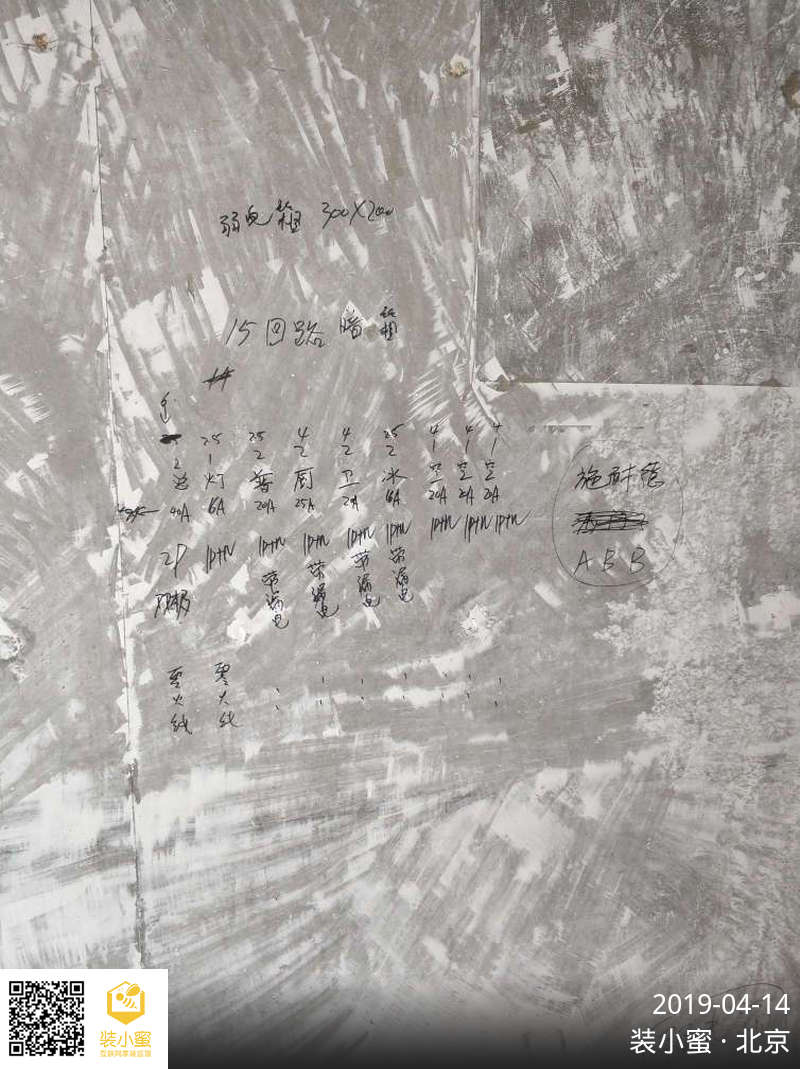 弱电箱 300X200
15回路暗箱
25 25 4 4 25 4 4 4
2 1 2 2 2 2 1 1 1
总 灯 普 厨 卫 冰 空 空 空
40A 16A 20A 25A 2A 16A 20A 2A 20A
2P 1P+N 1P+N 1P+N 1P+N 1P+N 1P+N 1P+N 1P+N
双极 带漏电 带漏电 带漏电 带漏电
零火线 零火线
施耐德
ABB
2019-04-14
装小蜜·北京
装小蜜